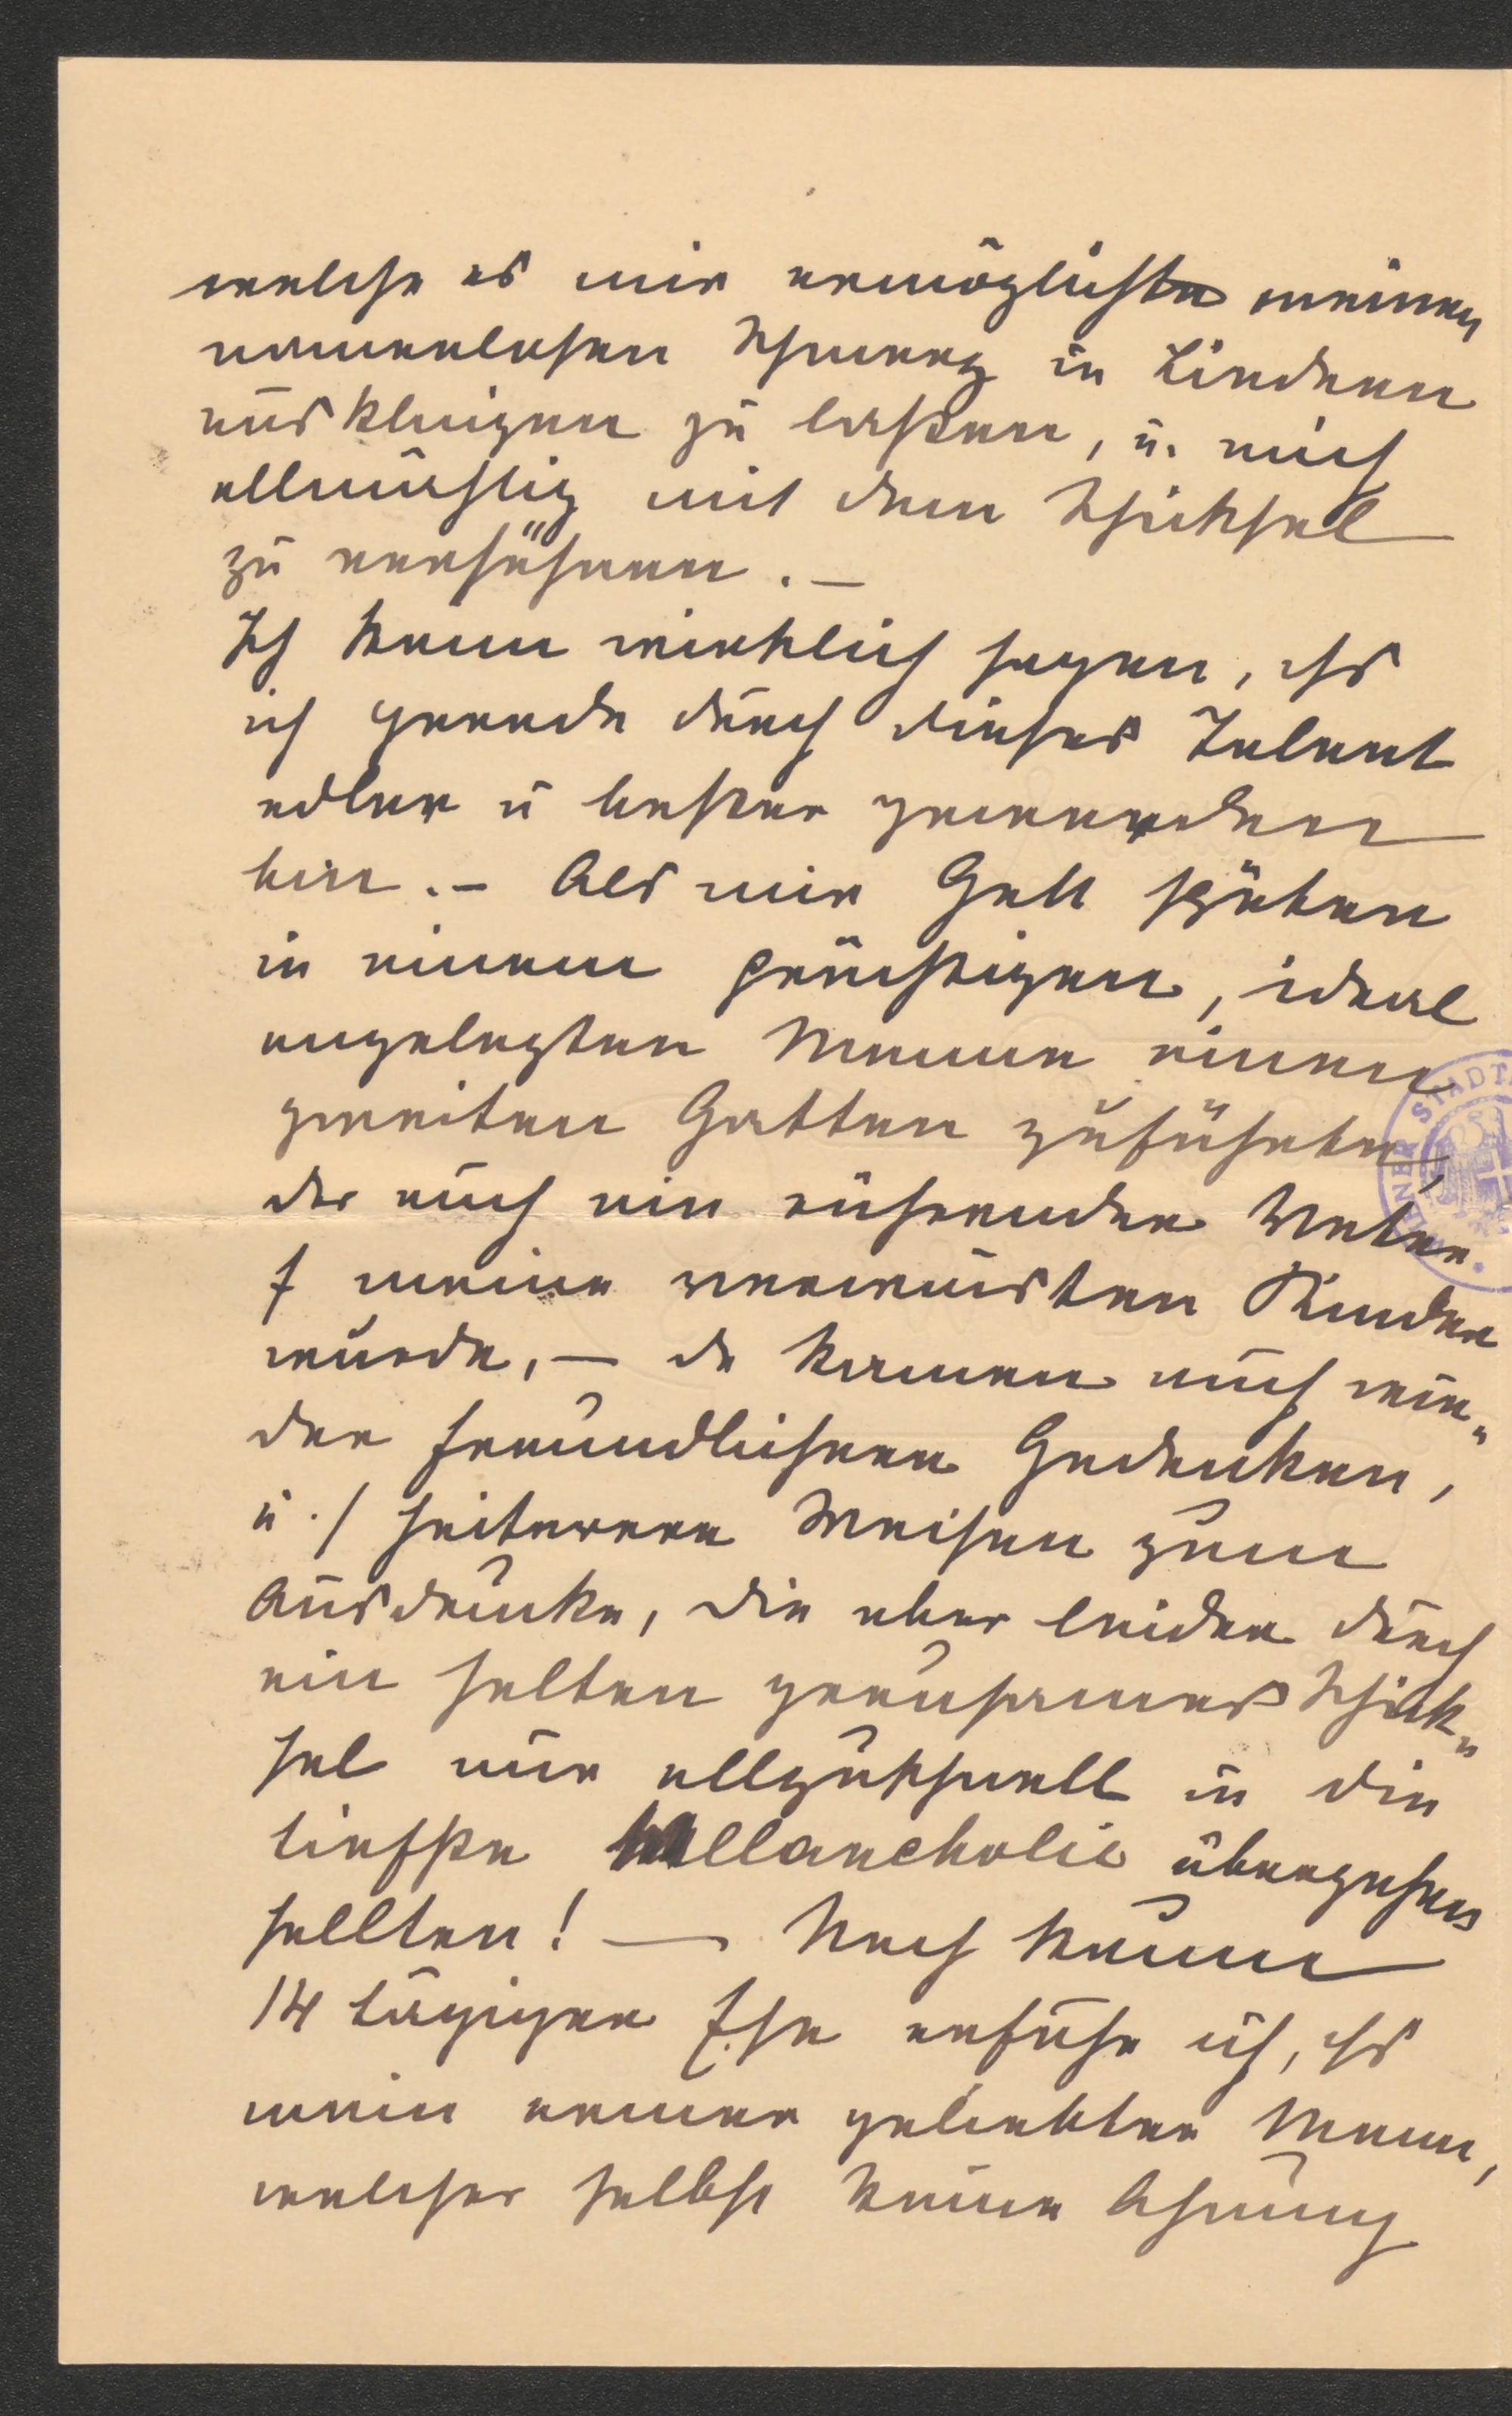 welche es mir ermöglichte meinen
namenlosen Schmerz in Liedern
ausklingen zu lassen, u. mich
allmächlig mit dem Schicksal
zu versöhnen. –
Ich kann wirklich sagen, dß
ich gerade durch dieses Talent
edler u besser geworden
bin. – Als mir Gott später
in einem geistigen, ideal
angelegten Manne einen
zweiten Gatten zuführte,
der auch ein rührender Vater
f meine verwaisten Kinder
wurde, – da kamen auch wie„
der freundlichere Gedanken,
u. / heiterere Weisen zum
Ausdrucke, die aber leider durch
ein selten grausames Schick„
sal nur allzuschnell in die
tiefste Mellancholie übergehen
sollten! – Nach kaum
14 tägiger Ehe erfuhr ich, dß
mein armer geliebter Mann,
welcher selbst keine Ahnung